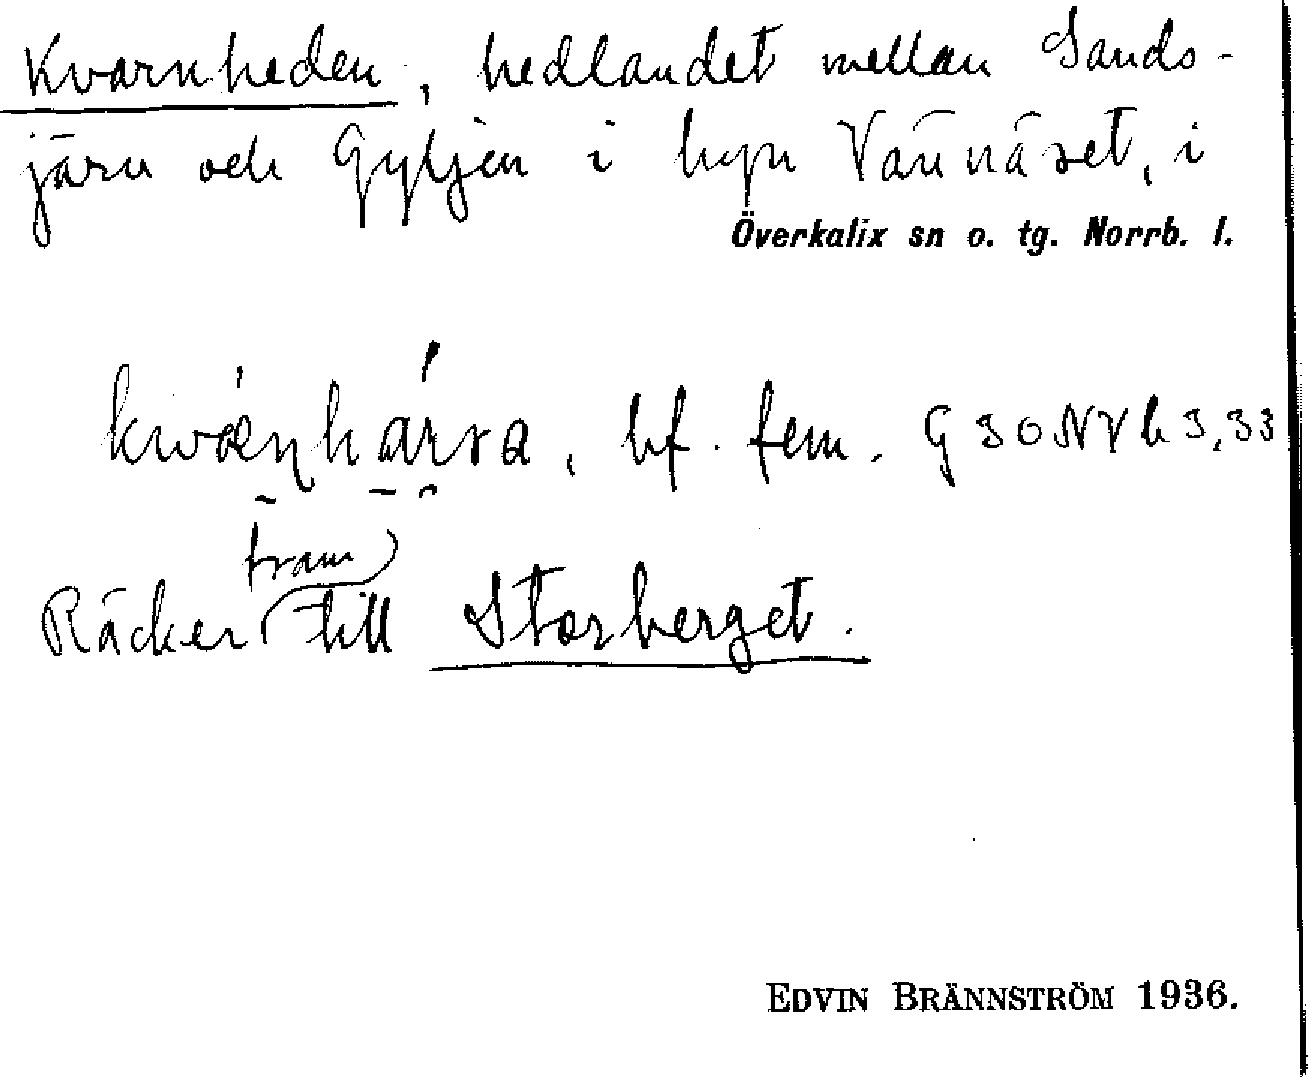 Kvarnheden, hedlandet mellan Sands-
järn och Gyljen i byn Vännäset, i
Överkalix sn o. tg. Norrb. l.
bf. fem. G 30 NV h 3,33
fram
Räcker till Storberget.
EDVIN BRÄNNSTRÖM 1936.